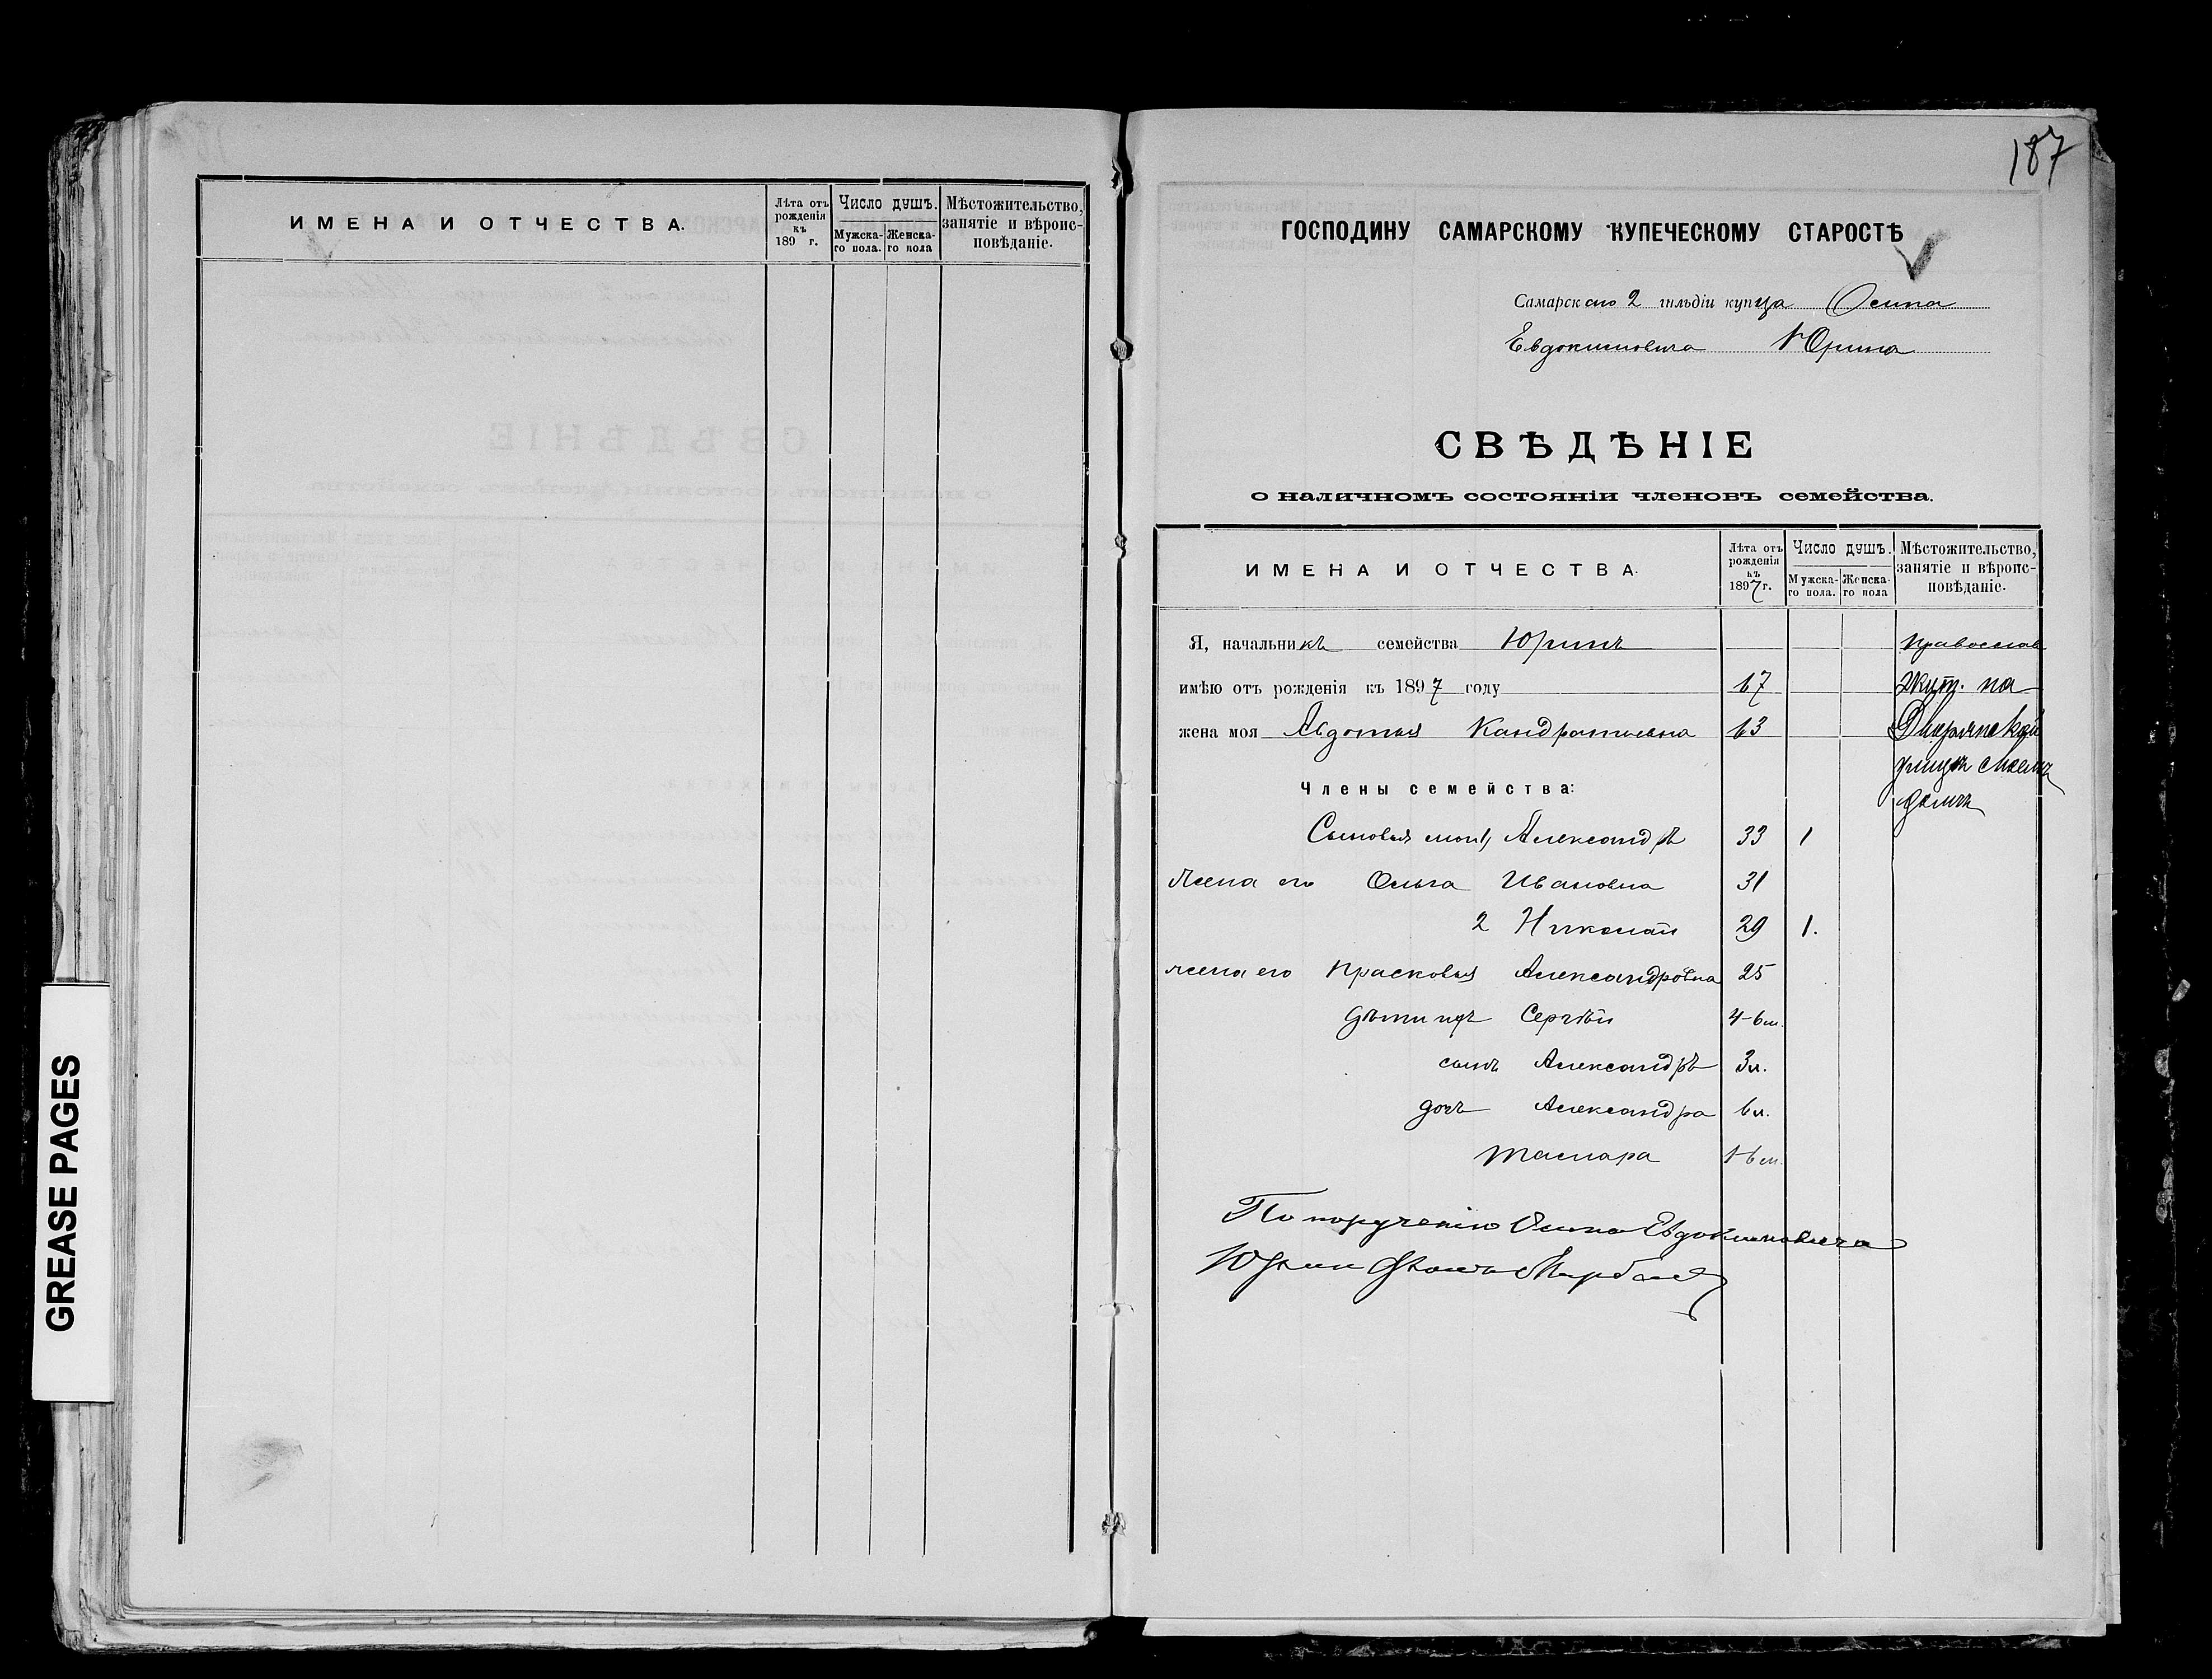 187
ИМЕНА И ОТЧЕСТВА.
Лѣта отъ рожденія къ 189 г.
Число душъ.
Мужска-го пола.
Женска-го пола
Мѣстожительство, занятіе и вѣроис-повѣданіе.
ГОСПОДИНУ САМАРСКОМУ КУПЕЧЕСКОМУ СТАРОСТѢ
Самарскаго 2 гильдіи купца Осипа
Евдокимовича Юрина
СВѢДѢНІЕ
о наличномъ состояніи членовъ семейства.
ИМЕНА И ОТЧЕСТВА.
Лѣта отъ рожденія къ 1897 г.
Число душъ.
Мужска-го пола.
Женска-го пола
Мѣстожительство, занятіе и вѣроис-повѣданіе.
Я, начальникъ семейства Юринъ православ
имѣю отъ рожденія къ 1897 году 67 Жит. на
жена моя Авдотья Кандратьевна 63 Дворянской
улицѣ своемъ
Члены семейства:
домѣ
Сыновья мои 1, Александръ 33 1
жена его Ольга Ивановна 31
2 Николай 29 1.
жена его Прасковья Александровна 25
дѣти ихъ Сергѣй 4-6 м.
сынъ Александръ 3 л.
дочь Александра 6 л.
Тамара 1-6 м.
По порученію Осипа Евдокимовича
Юрина
GREASE PAGES